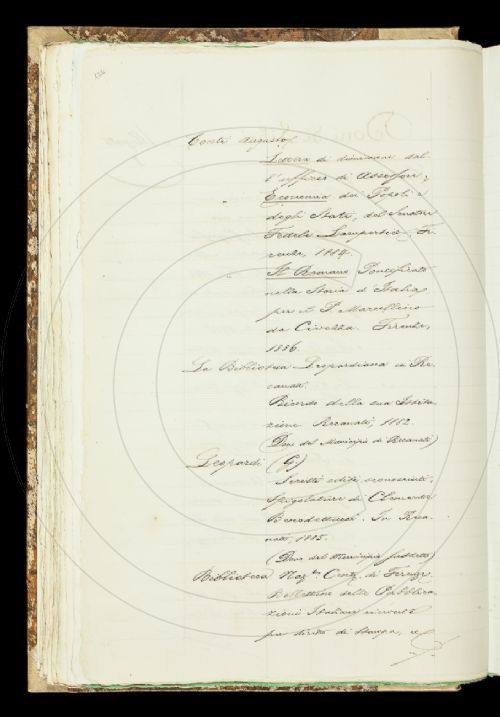 Conti Augusto
Lettera di dimissione dal-
l'ufficio di Assessore,
Economia dei Popoli e
degli Stati, del Senatore
Fedele Lampertico, Fi-
renze, 1884.
Il Romano Pontificato
nella Storia d'Italia
per il P. Marcellino
da Civezza. Firenze,
1886.
La Biblioteca Leopardiana in Re-
canati.
Ricordo della sua Istitu-
zione Recanati, 1882.
(Dono del Municipio di Recanati)
Leopardi (G)
Scritti editi sconosciuti.
Spigolature di Clemente
Benedettucci. In Reca-
nati, 1885.
(Dono del Municipio suddetto)
Biblioteca Naz.le Cent. di Firenze
Bollettino delle Pubblica-
zioni Italiane ricevute
per diritto di Stampa,